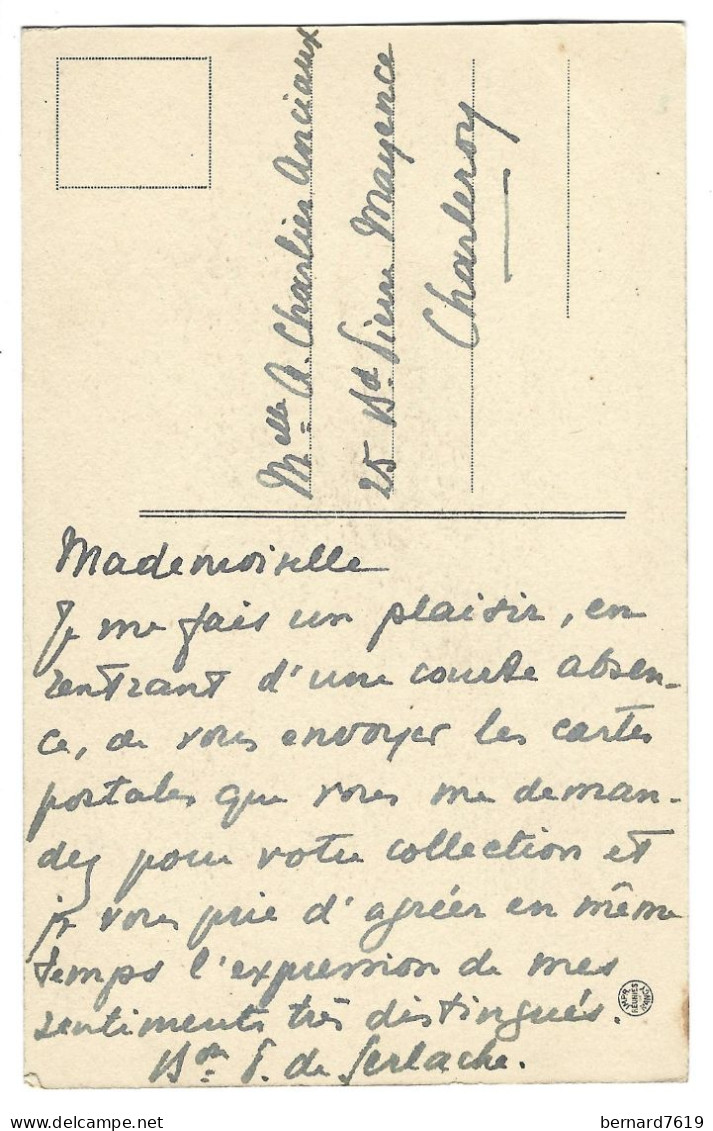 Melle A. Charlier Anciaux
25 Bd. Pierre Mayence
Charleroy
Mademoiselle
Je me fais un plaisir, en
rentrant d'une courte absen-
ce, de vous envoyer les cartes
postales que vous me deman-
dez pour votre collection et
je vous prie d'agréer en même
temps l'expression de mes
sentiments très distingués.
Bon de Gerlache.
IMPR.
RÉUNIES
bernard7619